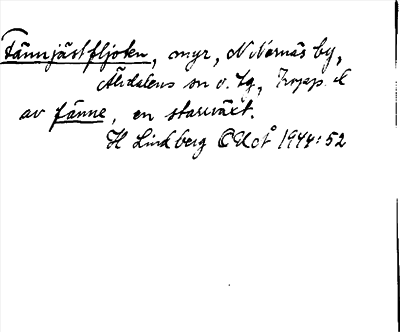 Fännjästfljoken, myr, N Nernäs by,
Älvdalens sn o. tg, Kopp. l
av fänne, en starrväxt.
H Lindberg 1944:52